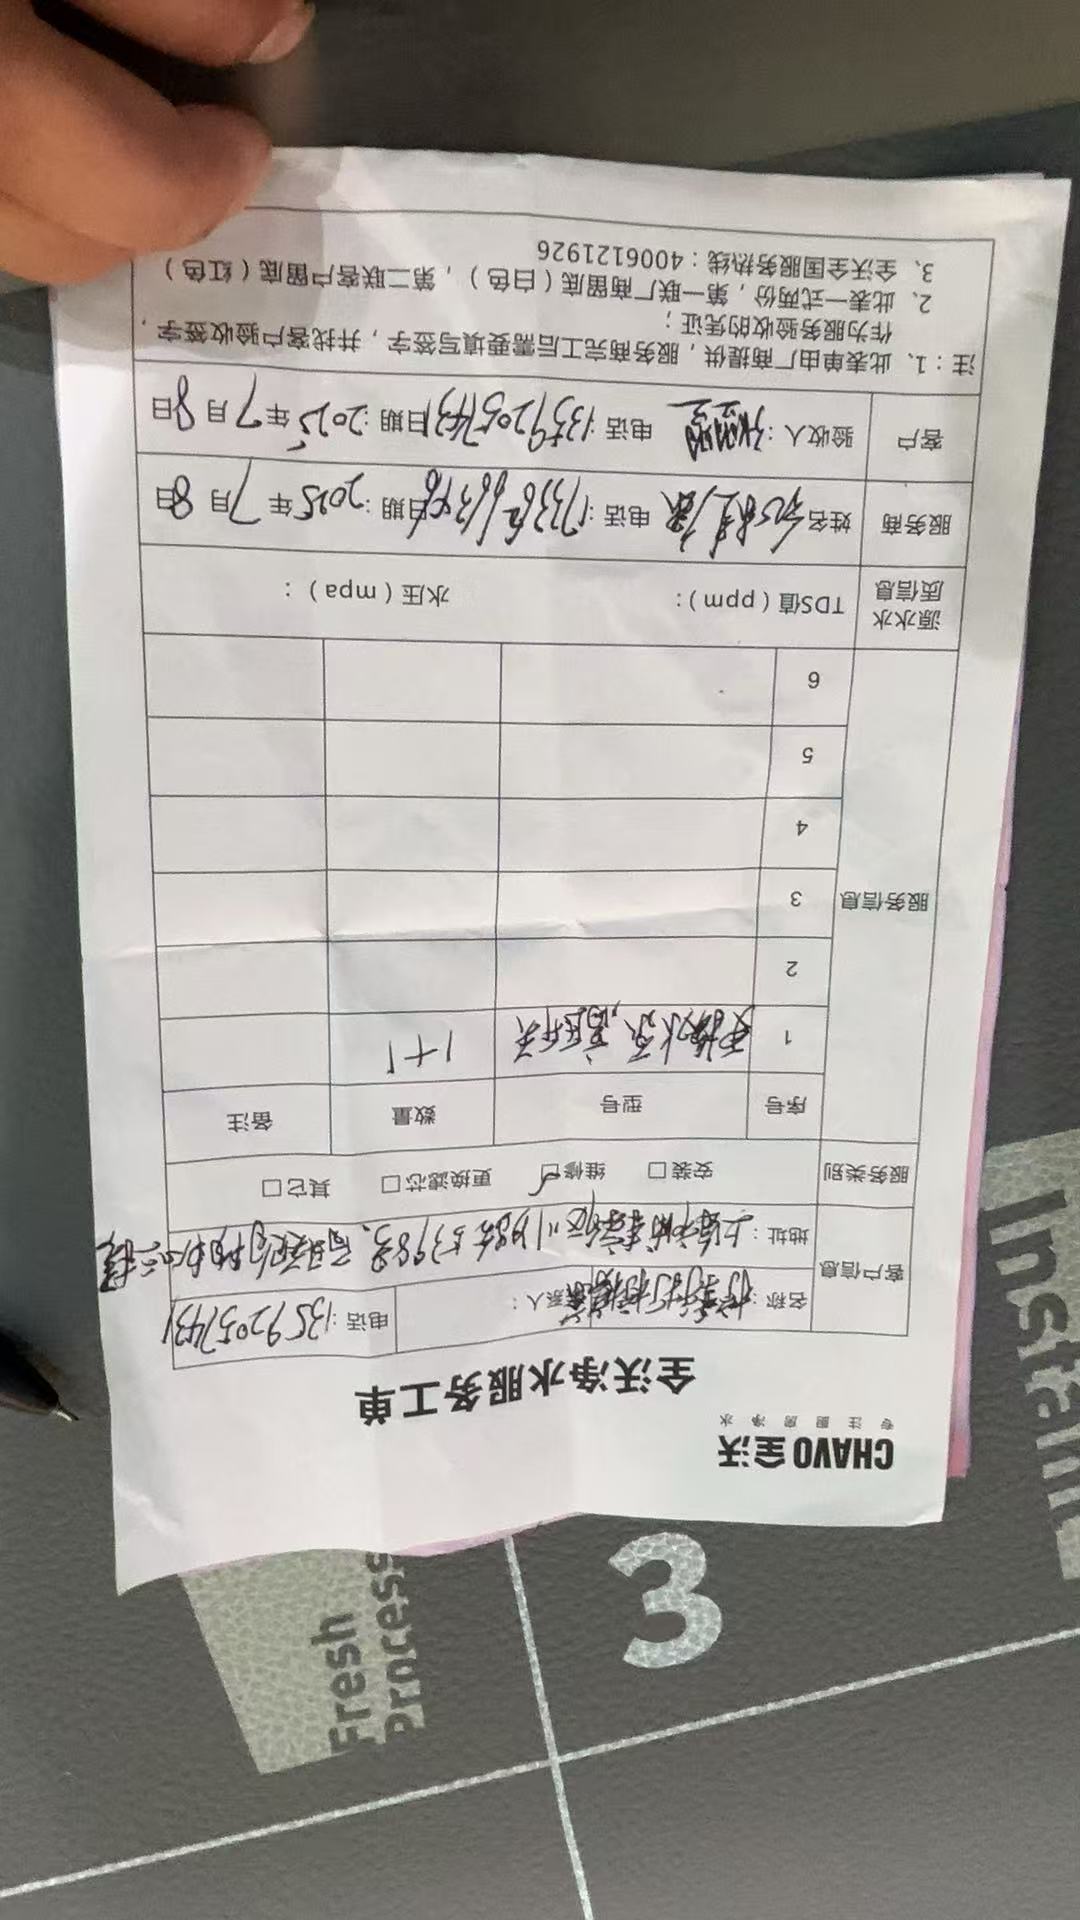 CHAVO 全沃
专注厨房净水
全沃净水服务工单
客户信息 名称： 联系人： 电话：13592057431
地址：上海市浦东新区川沙路5398号
服务类别 安装□ 维修☑ 更换滤芯□ 其它□
服务信息 序号 型号 数量 备注
1 更换水泵，高压开关 1+1
2
3
4
5
6
源水水质信息 TDS值（ppm）： 水压（mpa）：
服务商 姓名： 电话： 日期：2025年7月8日
客户 验收人： 电话：13592057431 日期：2025年7月8日
注：1、此表单由厂商提供，服务商完工后需要填写签字，并找客户验收签字，
作为服务验收的凭证；
2、此表一式两份，第一联厂商留底（白色），第二联客户留底（红色）
3、全沃全国服务热线：4006121926
3
Fresh
Process
Instant